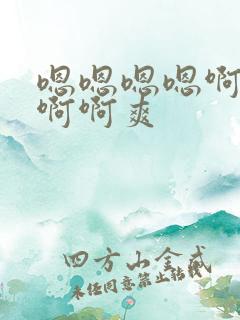 嗯嗯嗯嗯啊
啊啊爽
四方山金武
未经同意禁止转载